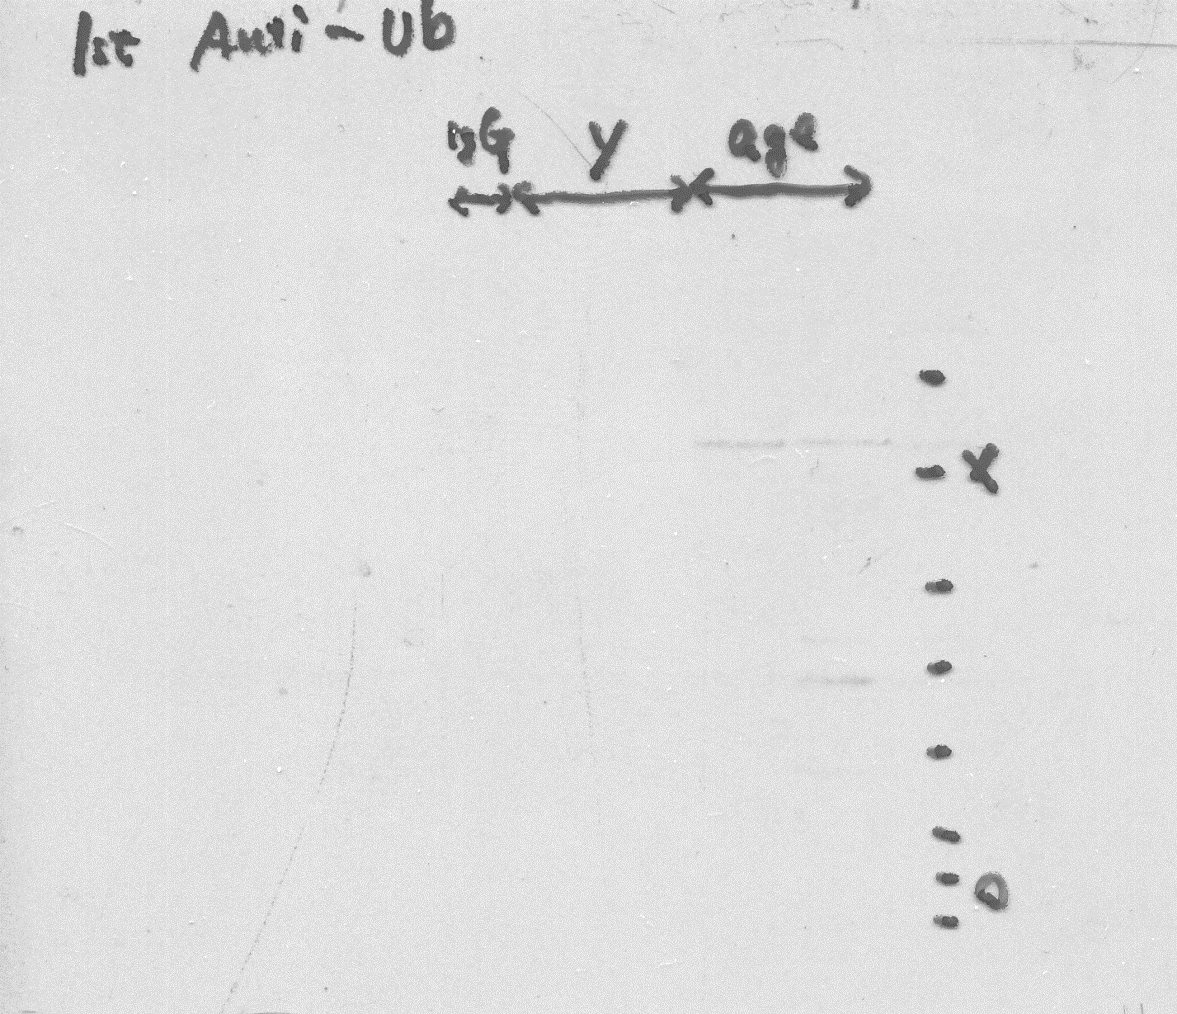 1st Anti-Ub
IgG Y age
X
O